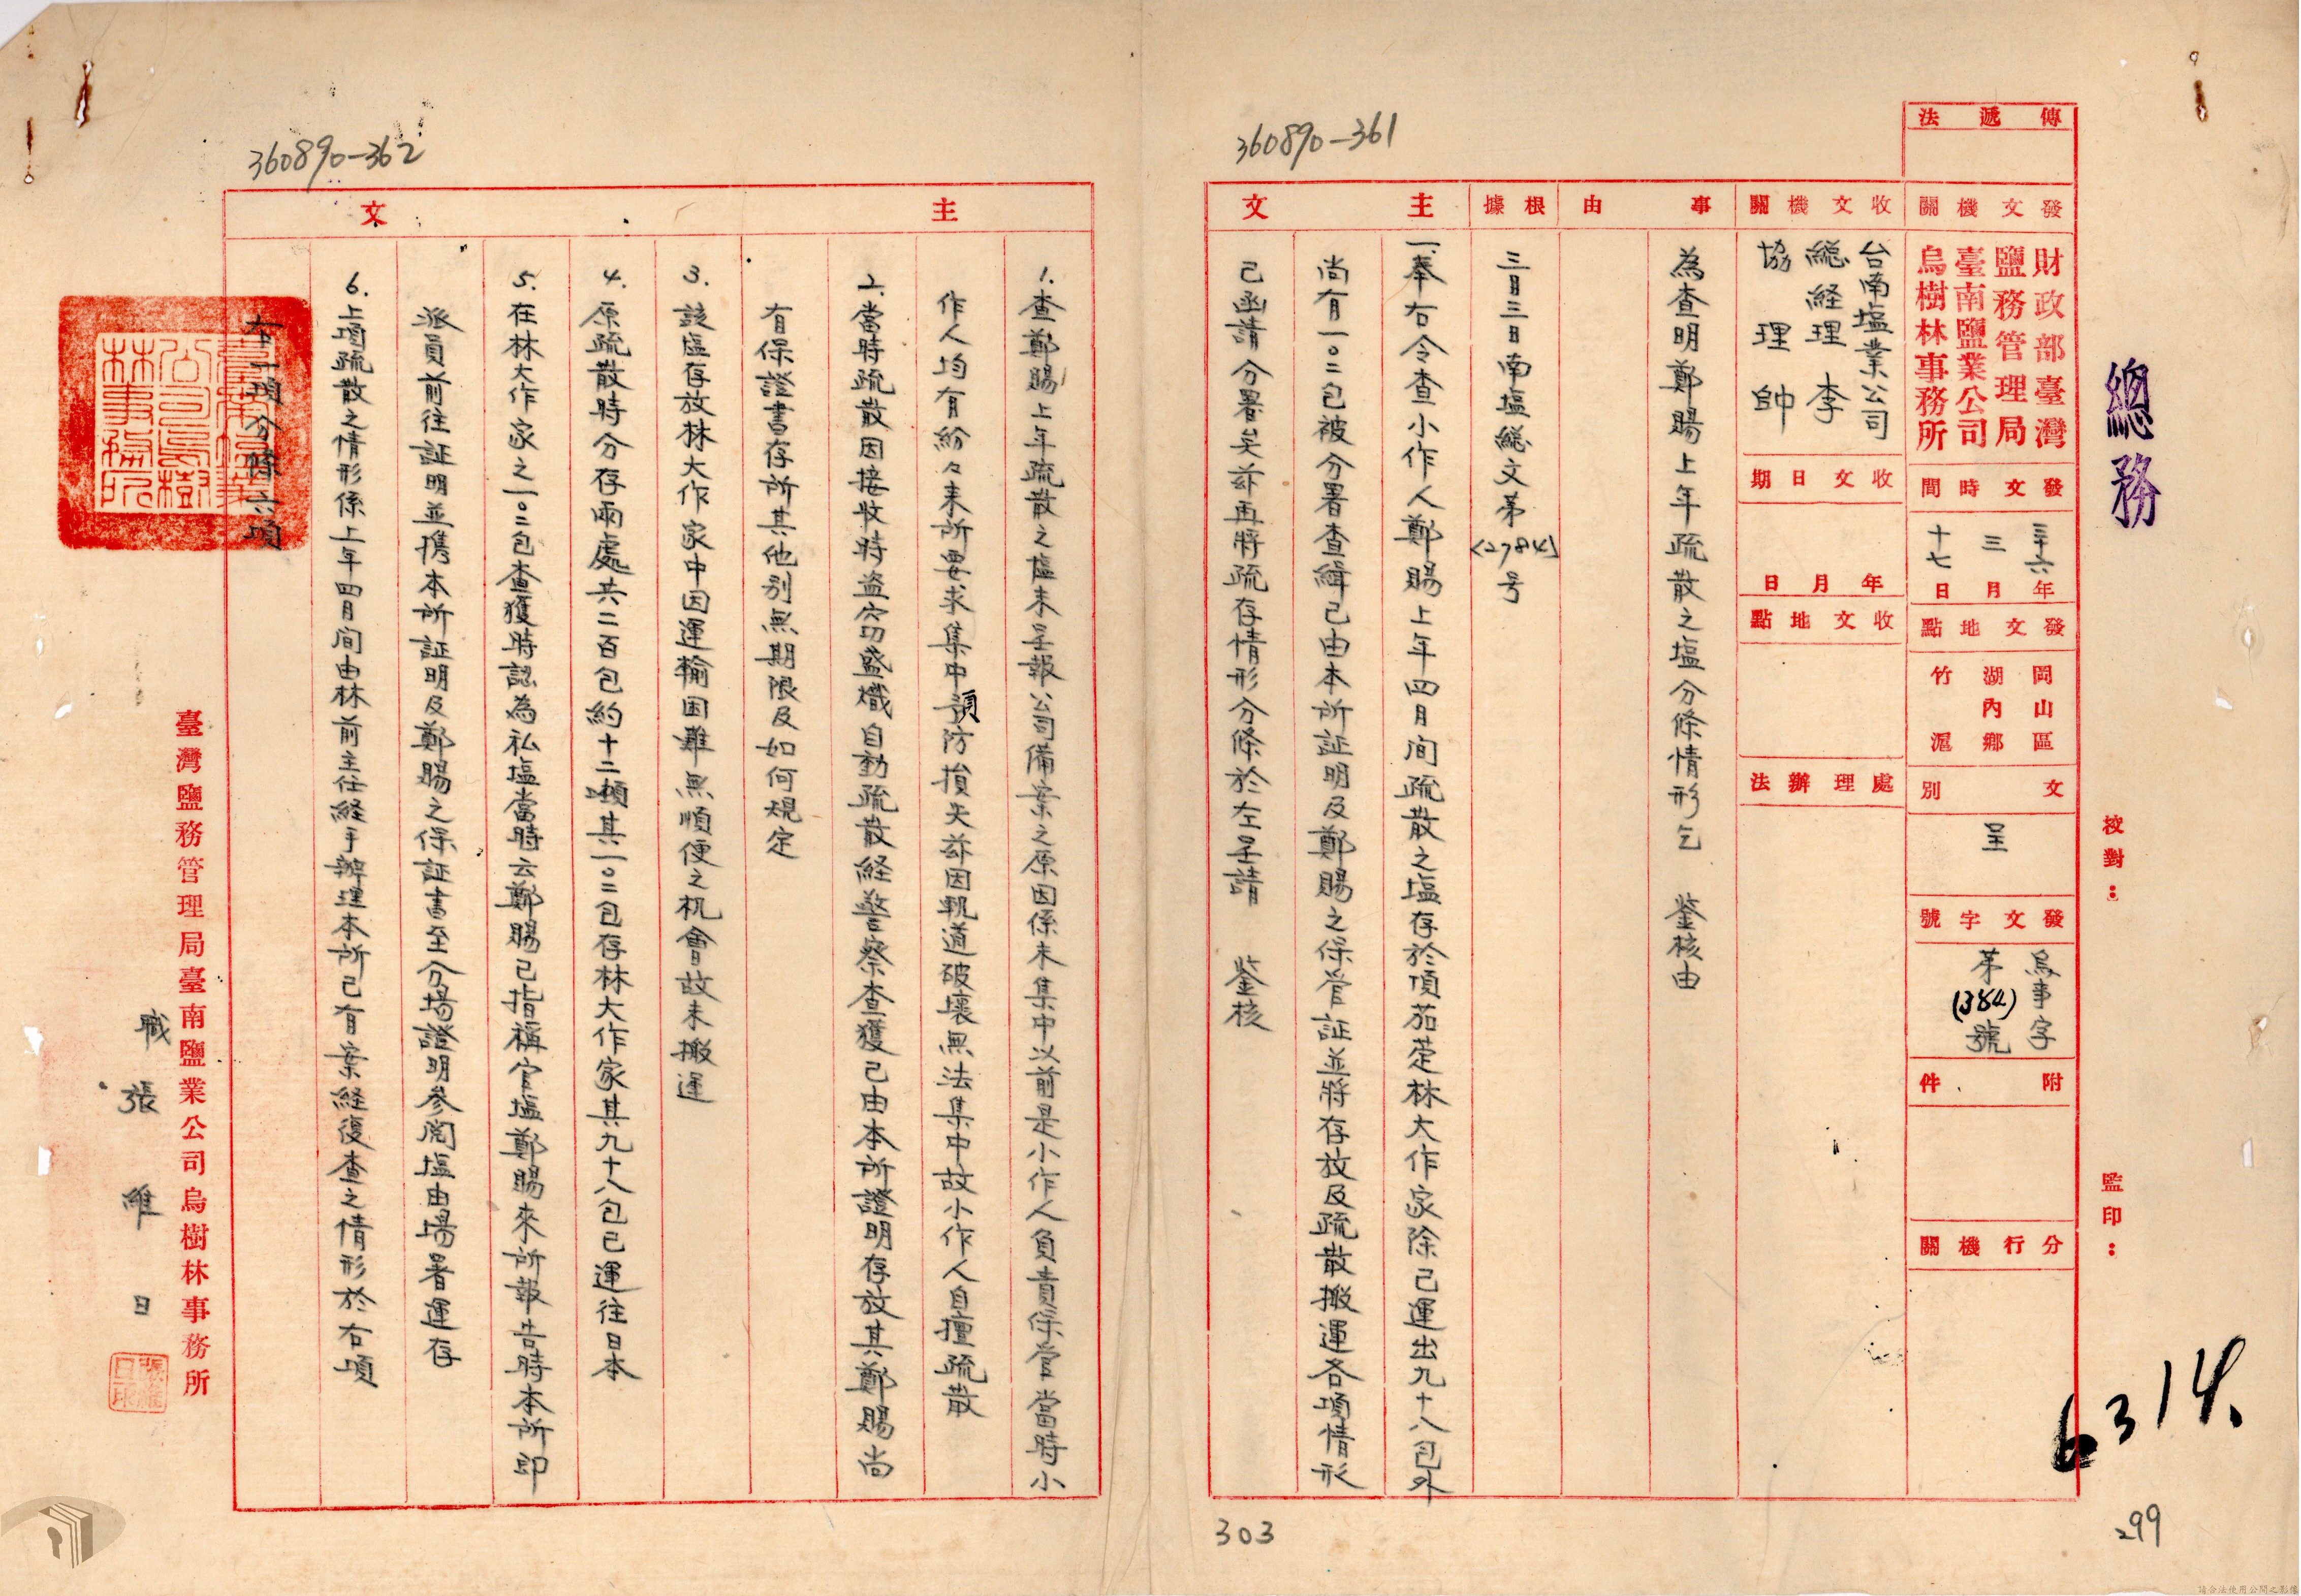 總務
校對：
監印：
6314.
299
傳遞法
發文機關
財政部臺灣
鹽務管理局
臺南鹽業公司
烏樹林事務所
發文時間
三十六年
三月
十七日
發文地點
岡山區
湖內鄉
竹滬
文別
呈
發文字號
烏事字
第(384)號
附件
分行機關
收文機關
台南塩業公司
総経理 李
協理 帥
收文日期
年月日
收文地點
處理辦法
事由
為查明鄭賜上年疏散之塩分條情形乞 鉴核由
根據
三月三日南塩総文第(2784)号
主文
一、奉右令查小作人鄭賜上年四月间疏散之塩存於項茄萣林大作家除已運出九十八包外
尚有一〇二包被分署查緝已由本所証明及鄭賜之保管証並將存放及疏散搬運各項情形
已函請分署矣茲再將疏存情形分條於左呈請 鉴核
360890-361
303
360890-362
主文
1.查鄭賜上年疏散之塩未呈報公司備案之原因係未集中以前是小作人負責保管當時小
作人均有紛々来所要求集中預防損失茲因軌道破壞無法集中故小作人自擅疏散
2.當時疏散因接收時盜窃盛熾自動疏散経警察查獲已由本所證明存放其鄭賜尚
有保證書存所其他別無期限及如何規定
3.該塩存放林大作家中因運輸困難無順便之机會故未搬運
4.原疏散時分存兩處共二百包約十二噸其一〇二包存林大作家其九十八包已運往日本
5.在林大作家之一〇二包查獲時認為私塩當時云鄭賜已指稱官塩鄭賜來所報告時本所即
派員前往証明並携本所証明及鄭賜之保証書至分場證明參閱塩由場署運存
6.上項疏散之情形係上年四月间由林前主任経手辦理本所已有案経復查之情形於右項
右一項分條六項
臺灣鹽務管理局臺南鹽業公司烏樹林事務所
職 張 維 日